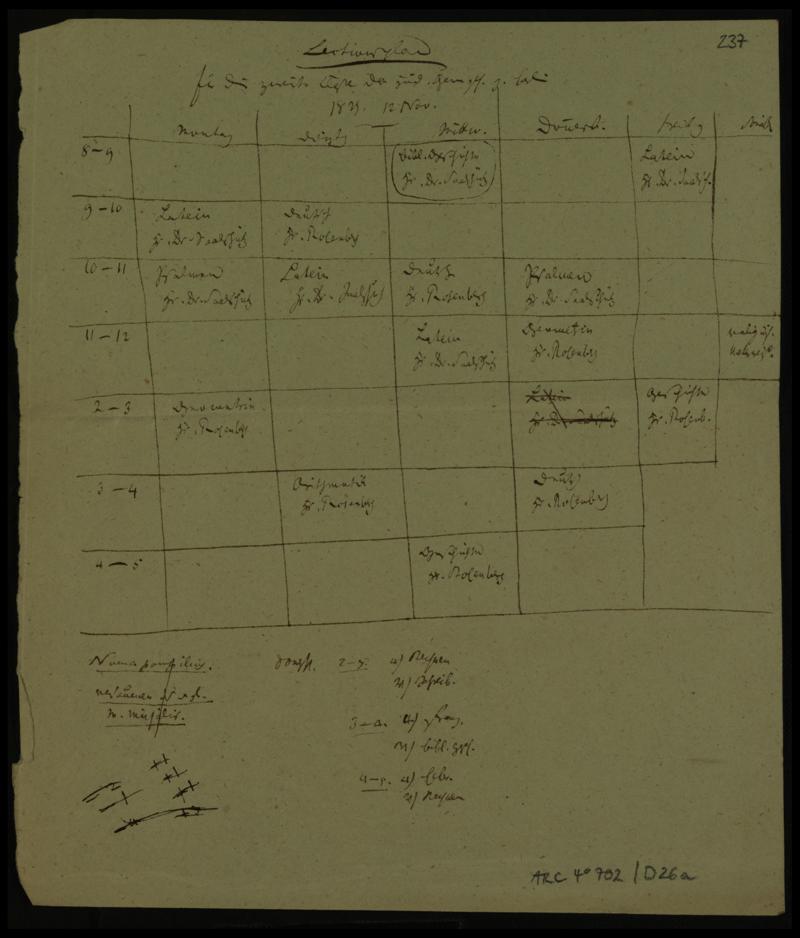 237
Lectionsplan
für die zweite Classe der jüd.
1831. 12 Nov.
Montag Dienst. Mittw. Donnerst. Freitag
8-9 bibl. Geschichte Latein
Hr. Dr. Saalschütz Hr. Dr. Saalsch.
9-10 Latein Deutsch
Hr. Dr. Saalschütz Hr. Rosenberg
10-11 Psalmen Latein Deutsch Psalmen
Hr. Dr. Saalschütz Hr. Dr. Saalschütz Hr. Rosenberg Hr. Dr. Saalschütz
11-12 Latein Geometrie
Hr. Dr. Saalschütz Hr. Rosenberg
2-3 Geometrie Latein Geschichte
Hr. Rosenberg Hr. Dr. Saalschütz Hr. Rosenb.
3-4 Arithmetik Deutsch
Hr. Rosenberg Hr. Rosenberg
4-5 Geschichte
Hr. Rosenberg
Numa pompilius.
2-3. 1) Rechnen
2) Schreib.
3-4. 1) Franz.
2) bibl. Gesch.
4-5. 1) Hebr.
2) Rechnen
ARC 4° 702 / D26a